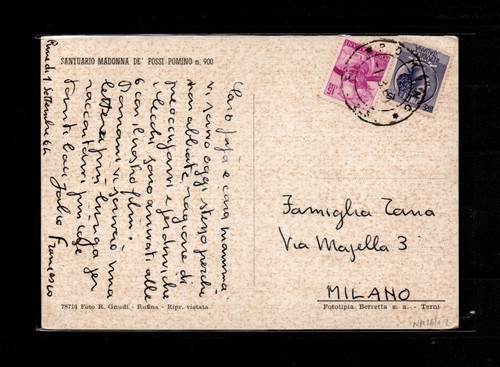 SANTUARIO MADONNA DE' FOSSI POMINO m. 900
1 Settembre 64
Caro papà e cara mamma,
vi scrivo oggi stesso perché
non abbiate ragione di
preoccuparvi
sono arrivati alle
6 con il nostro
Domani vi scriverò una
lettera più lunga per
raccontarvi più cose
Tanti baci
Francesco
Famiglia Zana
Via Majella 3
MILANO
78716 Foto R. Gnudi - Rufina - Ripr. vietata
Fototipia Berretta s. a. - Terni